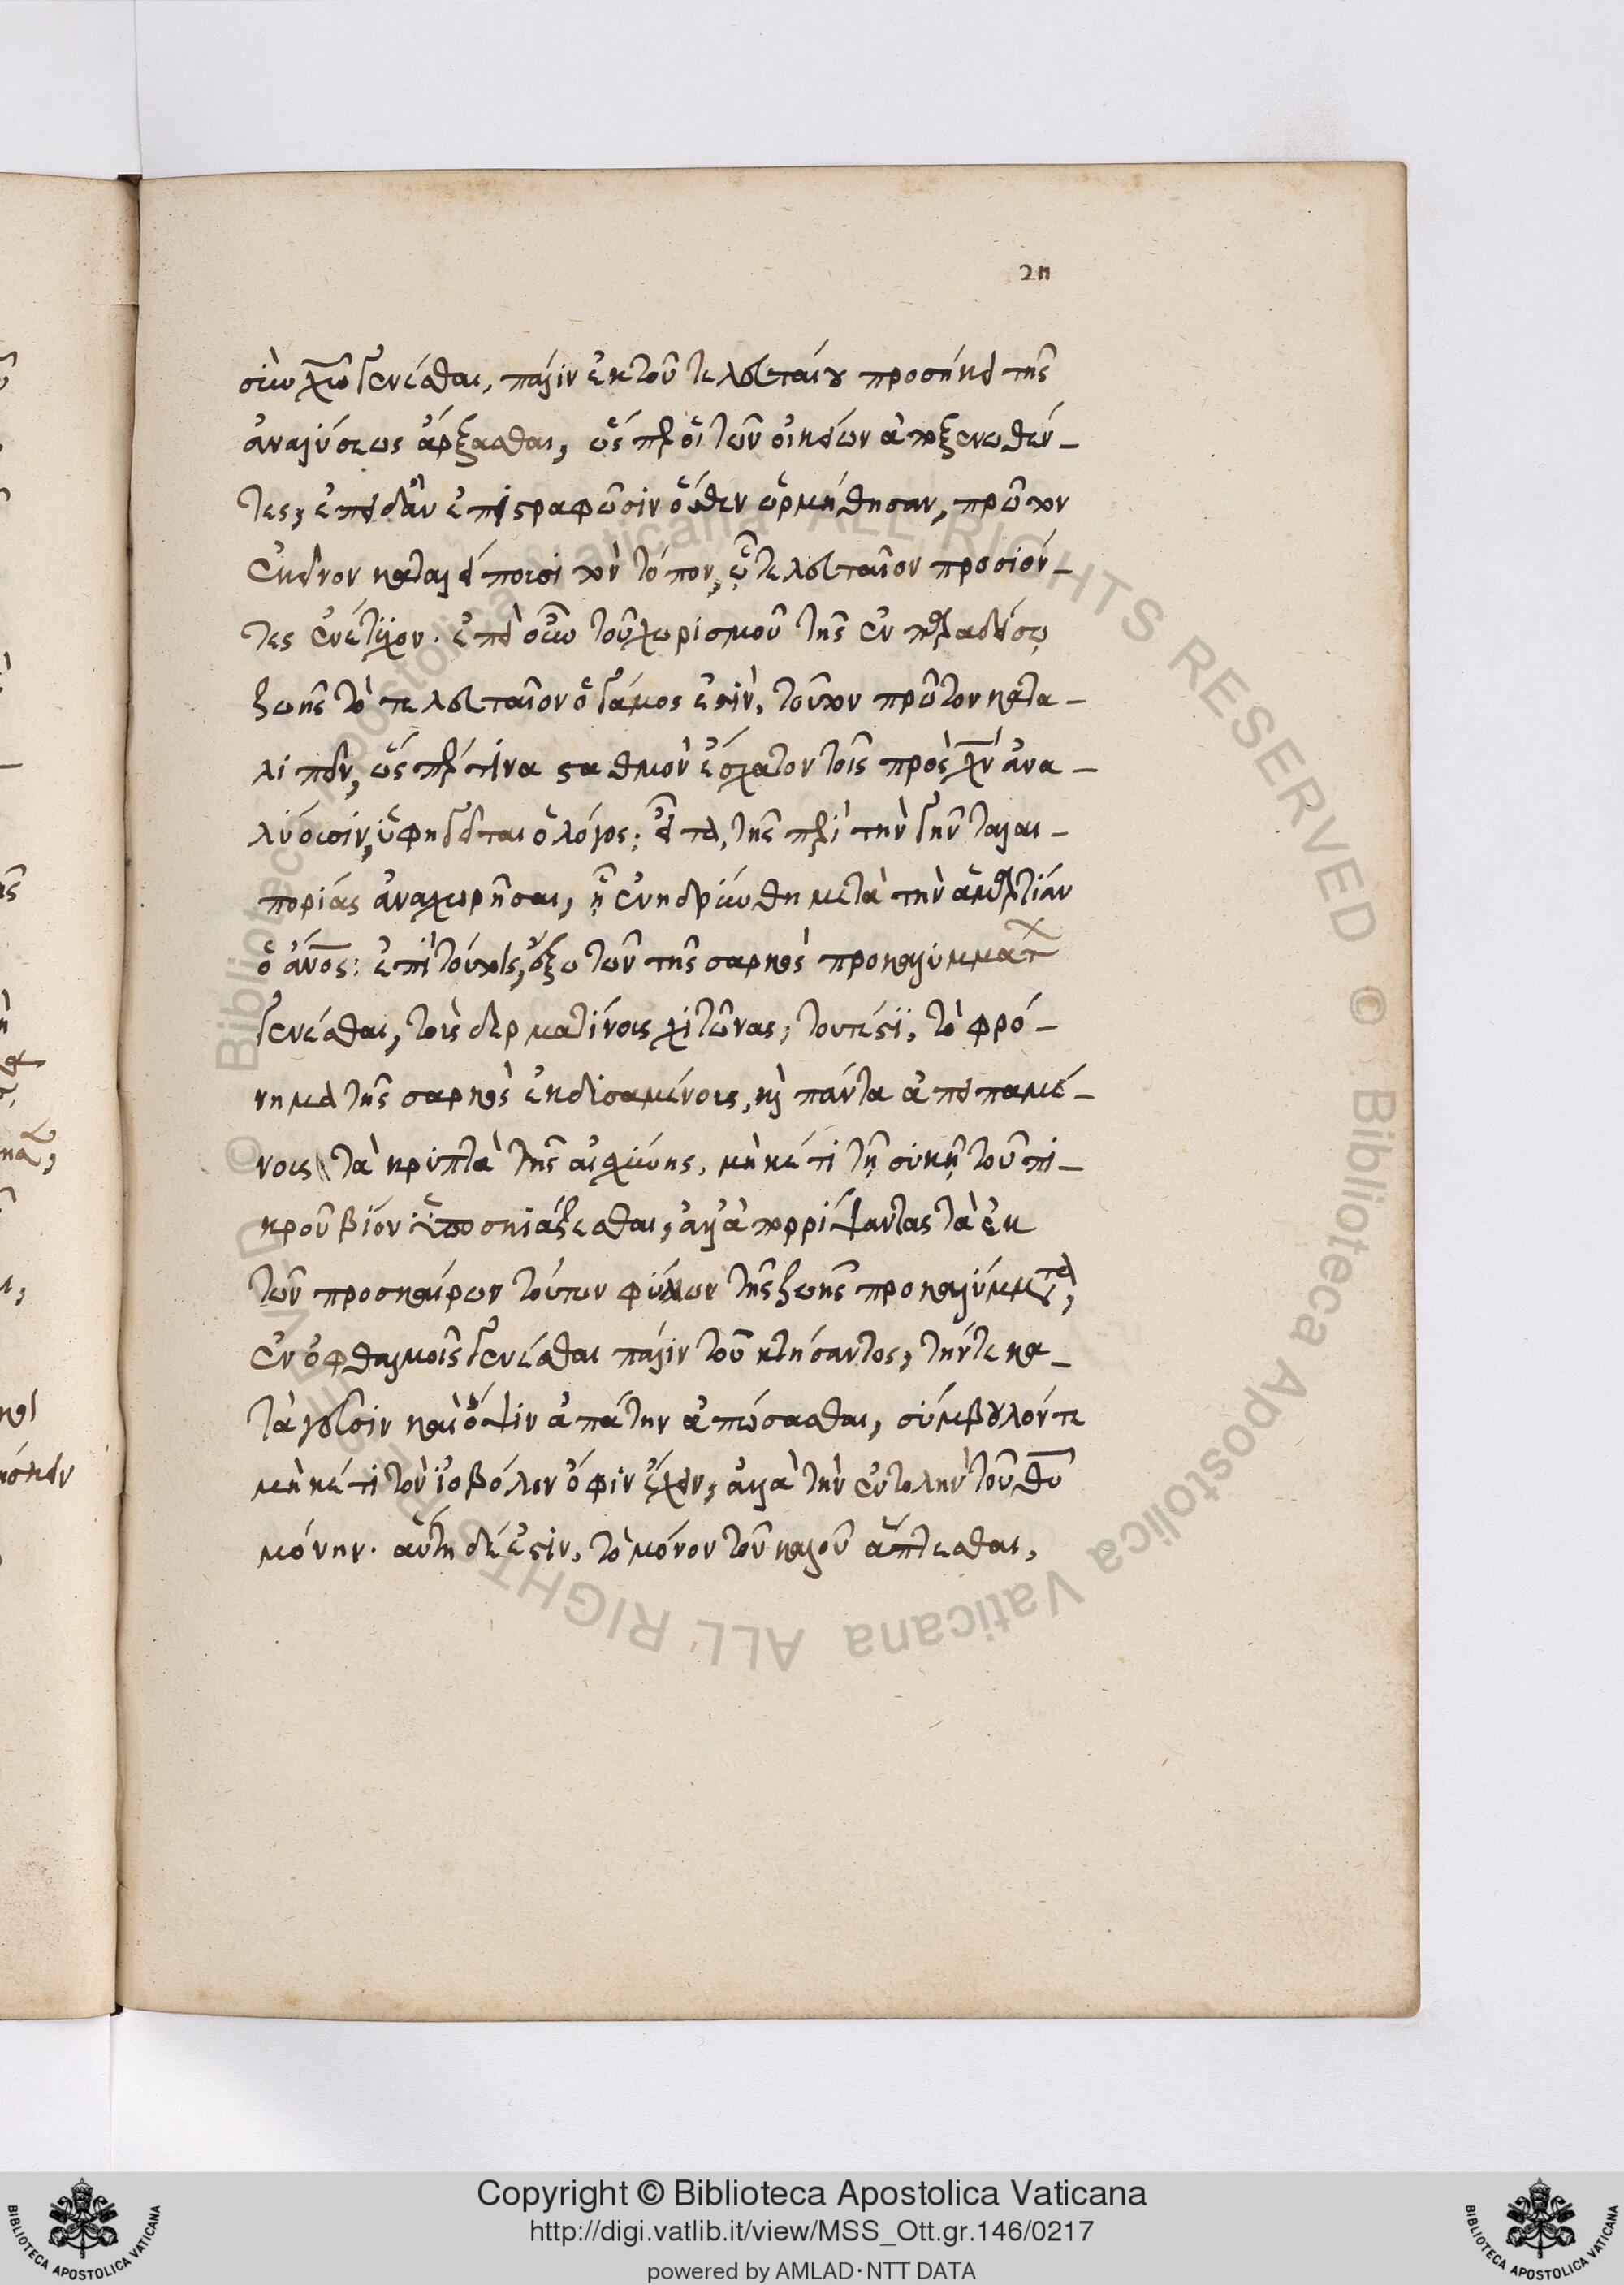 2π
σὺν χῶ γενέσθαι, πάλιν ἐκ τοῦ τελευταίου προσήκει τῆς
ἀναλύσεως ἄρξασθαι, ὥσπερ οἱ τῶν οἰκείων ἀποξενωθέν-
τες, ἐπειδὰν ἐπιστραφῶσιν ὅθεν ὡρμήθησαν, πρῶτον
ἐκεῖνον καταλείπουσι τὸν τόπον, ᾧ τελευταῖον προσιόν-
τες ἐνέτυχον. ἐπεὶ οὖν τοῦ χωρισμοῦ τῆς ἐν παραδείσῳ
ζωῆς τὸ τελευταῖον ὁ γάμος ἐστὶν, τοῦτον πρῶτον κατα-
λιπεῖν, ὥσπερ τινα σταθμὸν ἔσχατον τοῖς πρὸς χν ἀνα-
λύουσιν, ὑφηγεῖται ὁ λόγος: εἶτα, τῆς περὶ τὴν γῆν ταλαι-
πορίας ἀναχωρῆσαι, ᾗ ἐνηδρύνθη μετὰ τὴν ἁμαρτίαν
ὁ ἄνος: ἐπὶ τούτοις, ἔξω τῶν τῆς σαρκὸς προκαλυμμάτ
γενέσθαι, τοὺς δερματίνους χιτῶνας, τουτέστι, τὸ φρό-
νημα τῆς σαρκὸς ἐκδυσαμένους, καὶ πάντα ἀπειπαμέ-
νους τὰ κρυπτὰ τῆς αἰσχύνης, μὴ κέτι τῇ συκῇ τοῦ πι-
κροῦ βίου ὑποσκιάζεσθαι, ἀλλ' ἀπορρίψαντας τὰ ἐκ
τῶν προσκαίρων τούτων φύλλων τῆς ζωῆς προκαλύμματα,
ἐν ὀφθαλμοῖς γενέσθαι πάλιν τοῦ κτήσαντος, τήν τε κα-
τὰ γεῦσιν καὶ ὄψιν ἀπάτην ἀπώσασθαι, σύμβουλόν τε
μὴ κέτι τὸν ἰοβόλον ὄφιν ἔχειν, ἀλλὰ τὴν ἐντολὴν τοῦ θῦ
μόνην. αὕτη δέ ἐστιν, τὸ μόνον τοῦ καλοῦ ἅπτεσθαι,
Copyright © Biblioteca Apostolica Vaticana
http://digi.vatlib.it/view/MSS_Ott.gr.146/0217
powered by AMLAD·NTT DATA
BIBLIOTECA APOSTOLICA VATICANA
BIBLIOTECA APOSTOLICA VATICANA